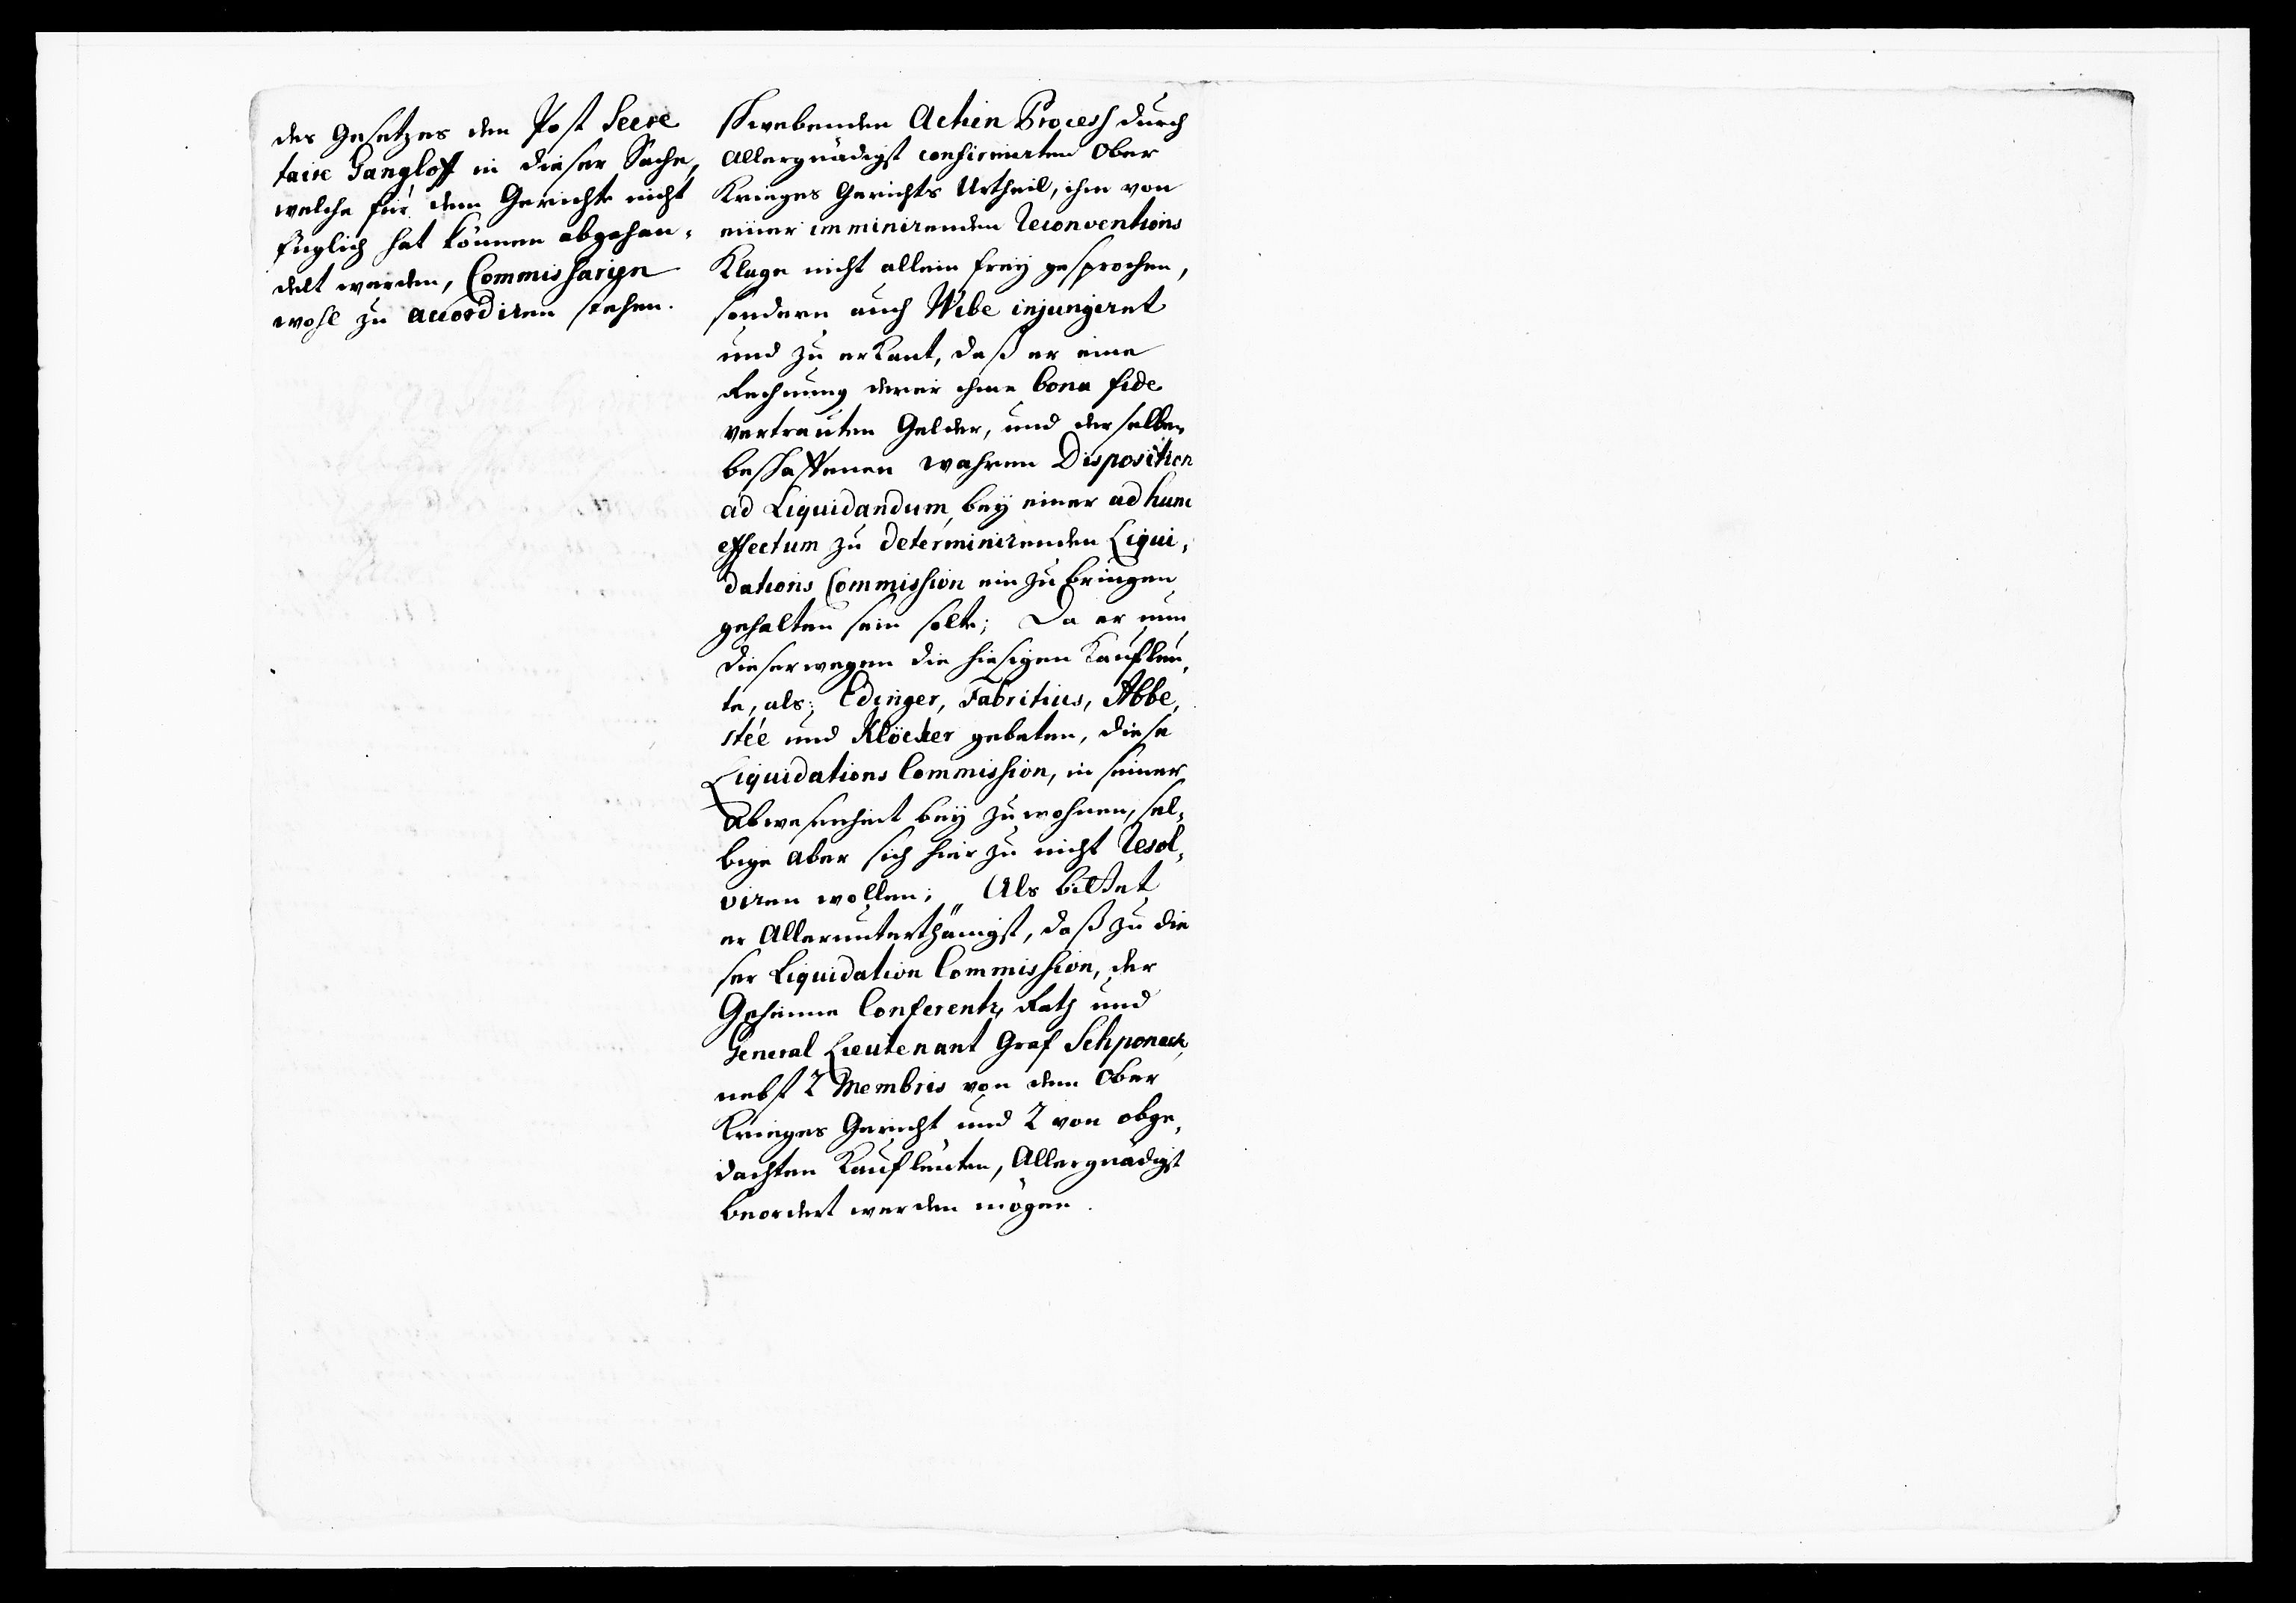 des Gesetzes den Post Secre
taire Gangloff in dieser Sache,
welche für dem Gerichte nicht
füglich hat können abgehan-
delt werden, Commissarien
wohl zu accordiren stehen.
schwebenden Action Process durch
Allergnädigst confirmirten Ober
Krieges Gerichts Urtheil, ihm von
einer imminirenden Reconventions
Klage nicht allein frey gesprochen,
sondern auch Wibe injungiret
und zu erkant, daß er eine
Rechnung derer ihme bona fide
vertrauten Gelder, und derselben
beschaffenen wahren Disposition
ad Liquidandum, bey einer ad hunc
effectum zu determinirenden Liqui-
dations Commission ein zu bringen
gehalten sein solte; Da er nun
dieserwegen die hiesigen Kaufleu-
te, als: Edinger, Fabritius, Abbe-
stée und Klöcker gebeten, diese
Liquidations Commission, in seiner
Abwesenheit bey zu wohnen, sel-
bige aber sich hier zu nicht Resol-
viren wollen; Als bittet
er Allerunterthänigst, daß zu die
ser Liquidation Commission, der
Geheime Conferentz Rath und
General Lieutenant Graf Schponeck,
nebst 2 Membris von dem Ober
Krieges Gericht und 2 von obge-
dachten Kaufleuten, Allergnädigst
beordert werden mögen.